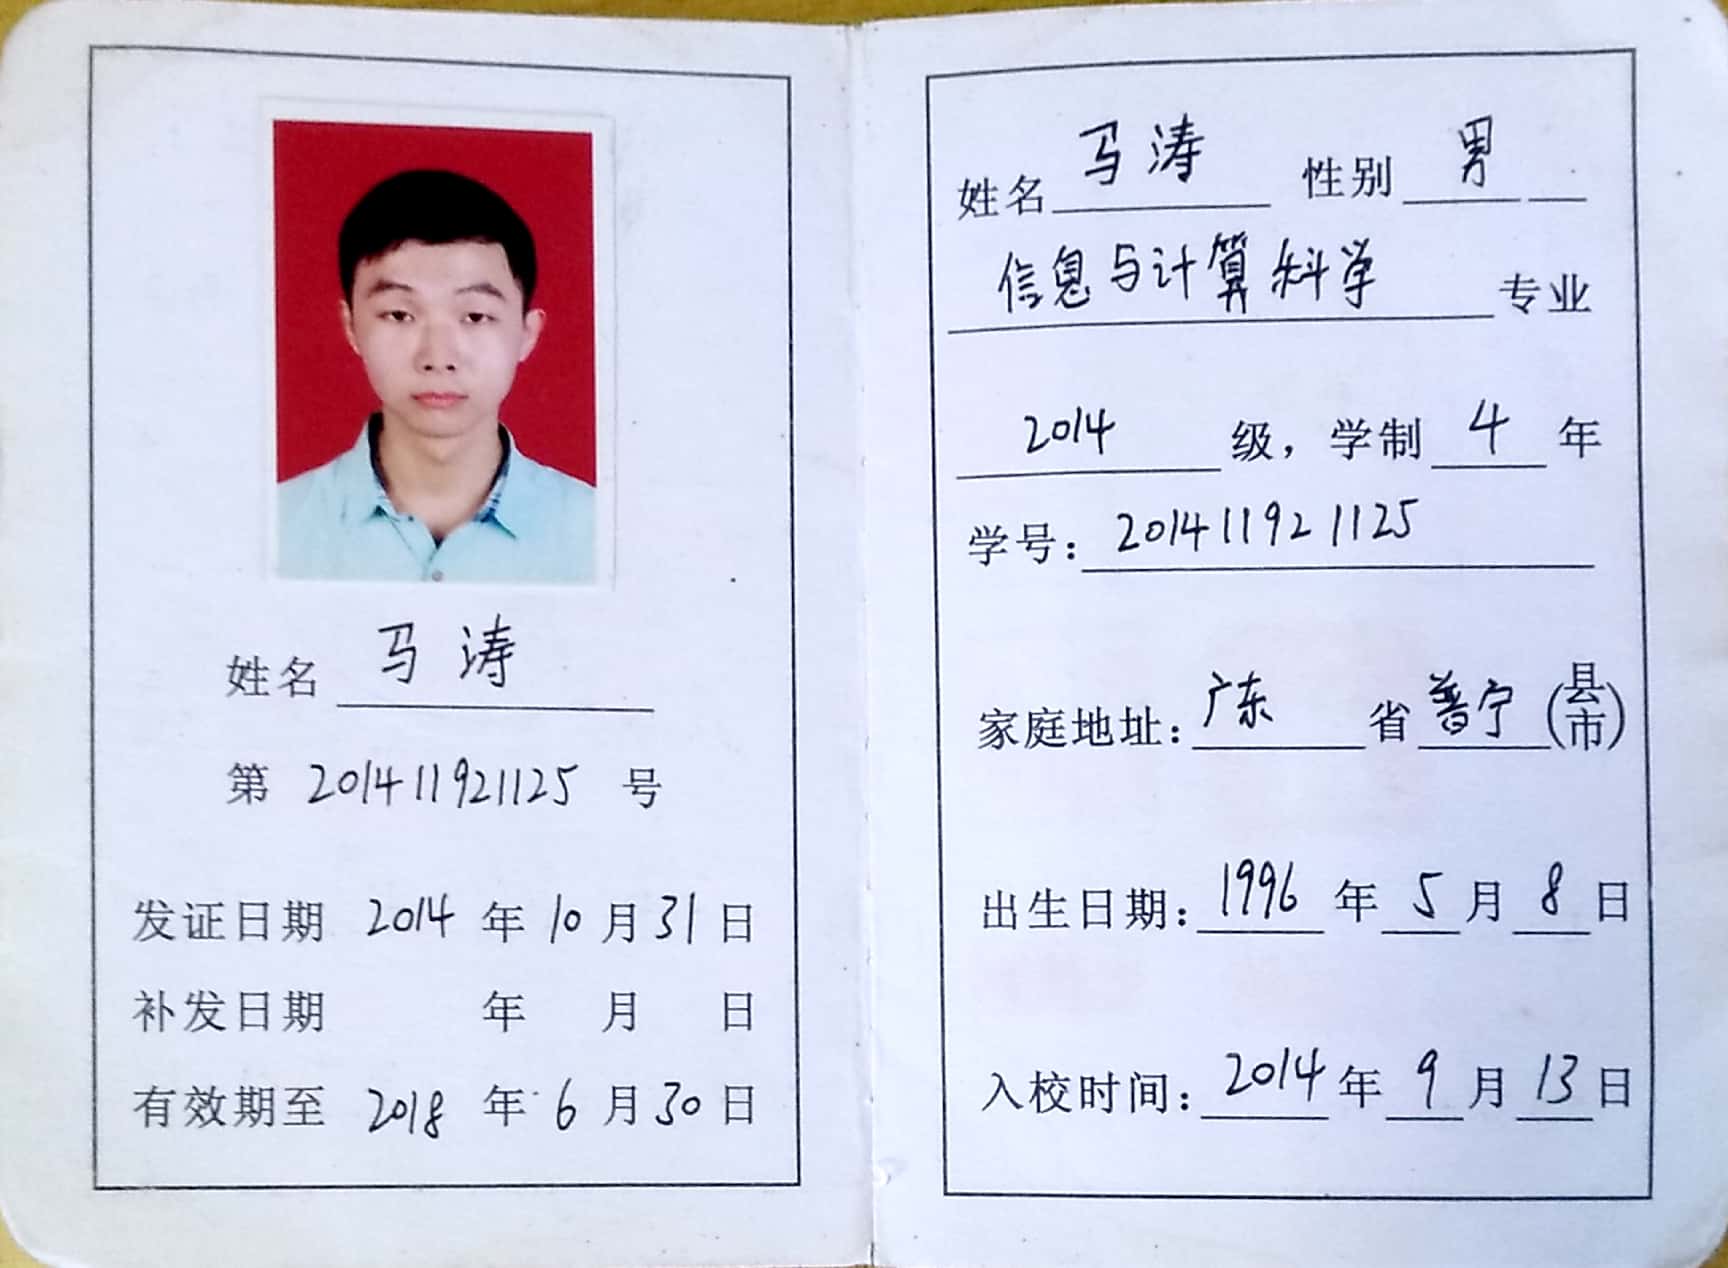 姓名 马涛
第 201411921125 号
发证日期 2014 年 10 月 31 日
补发日期 年 月 日
有效期至 2018 年 6 月 30 日
姓名 马涛 性别 男
信息与计算科学 专业
2014 级，学制 4 年
学号：201411921125
家庭地址：广东 省 普宁 (县市)
出生日期：1996 年 5 月 8 日
入校时间：2014 年 9 月 13 日